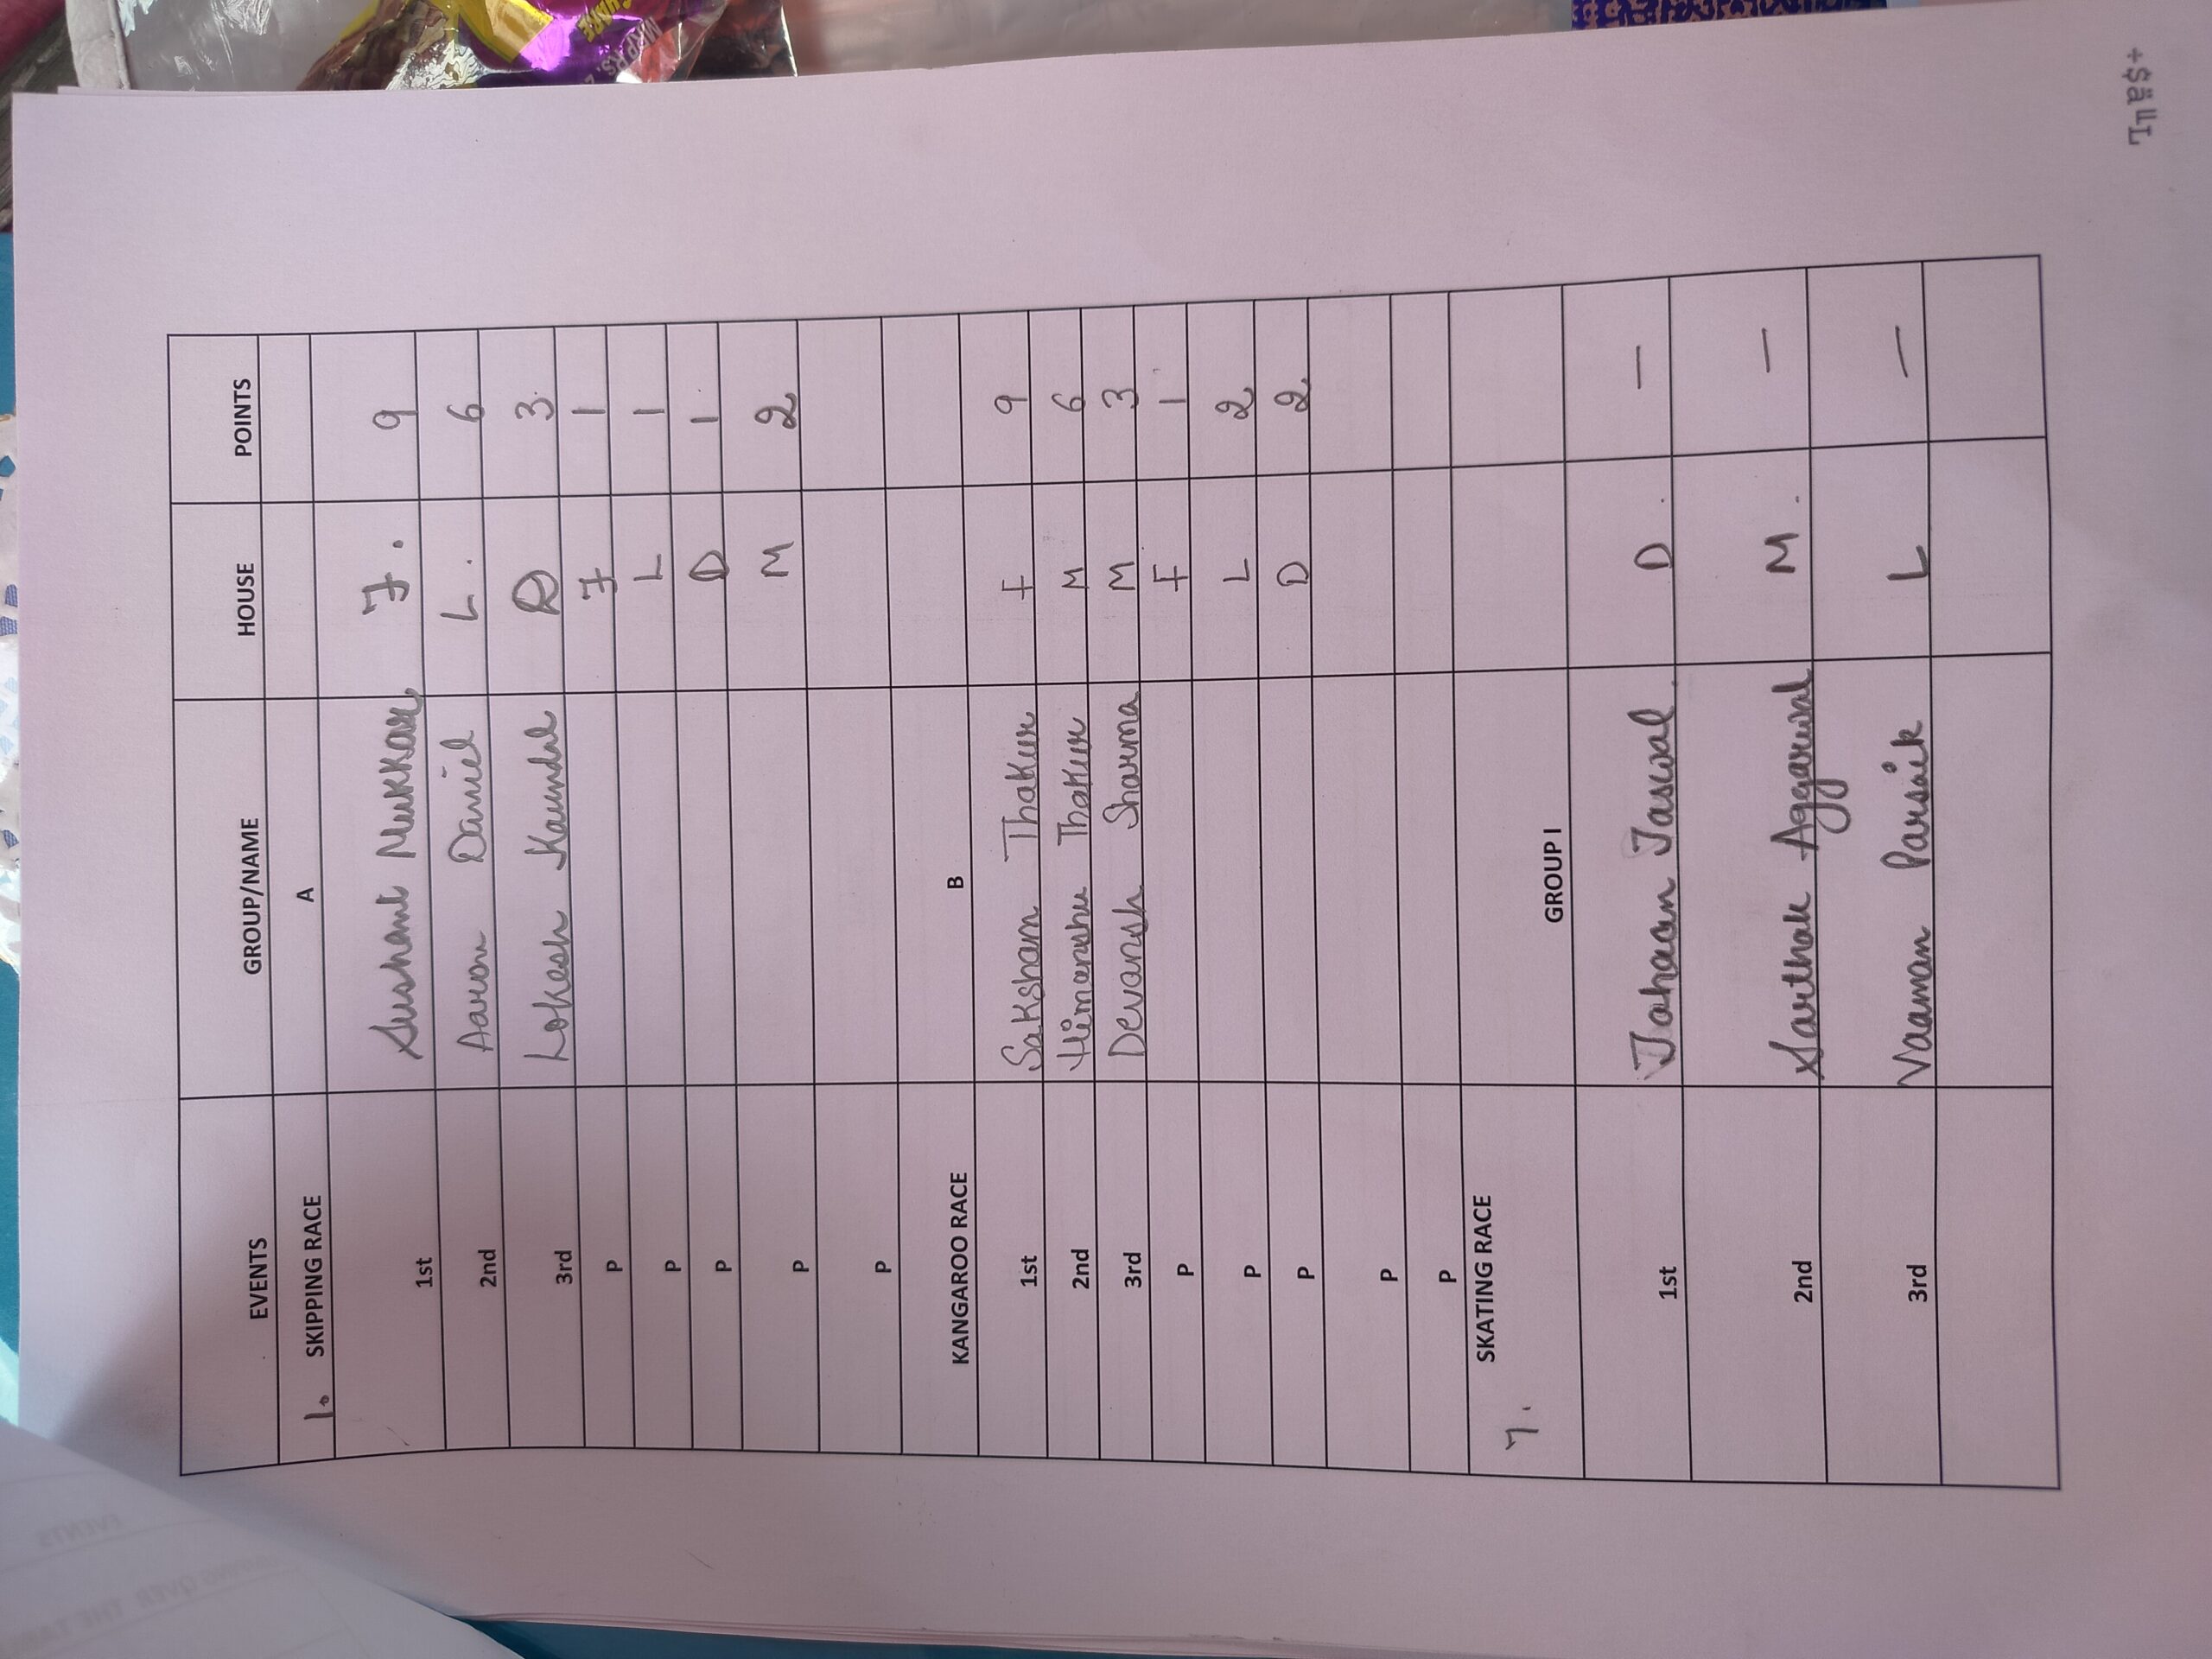 EVENTS GROUP/NAME HOUSE POINTS
1. SKIPPING RACE A
1st Sushant Mukkar F. 9
2nd Aaron Daniel L. 6
3rd Lokesh Kaundal D 3.
P F 1
P L 1
P D 1
P M 2
P
KANGAROO RACE B
1st Saksham Thakur F 9
2nd Himanshu Thakur M 6
3rd Devansh Sharma M 3
P F 1
P L 2
P D 2
P
P
7. SKATING RACE
GROUP I
1st Jahaan Jaswal D. —
2nd Sarthak Aggarwal M. —
3rd Vaaman Parsaik L —
MRP RS.
EVENTS
OVER THE